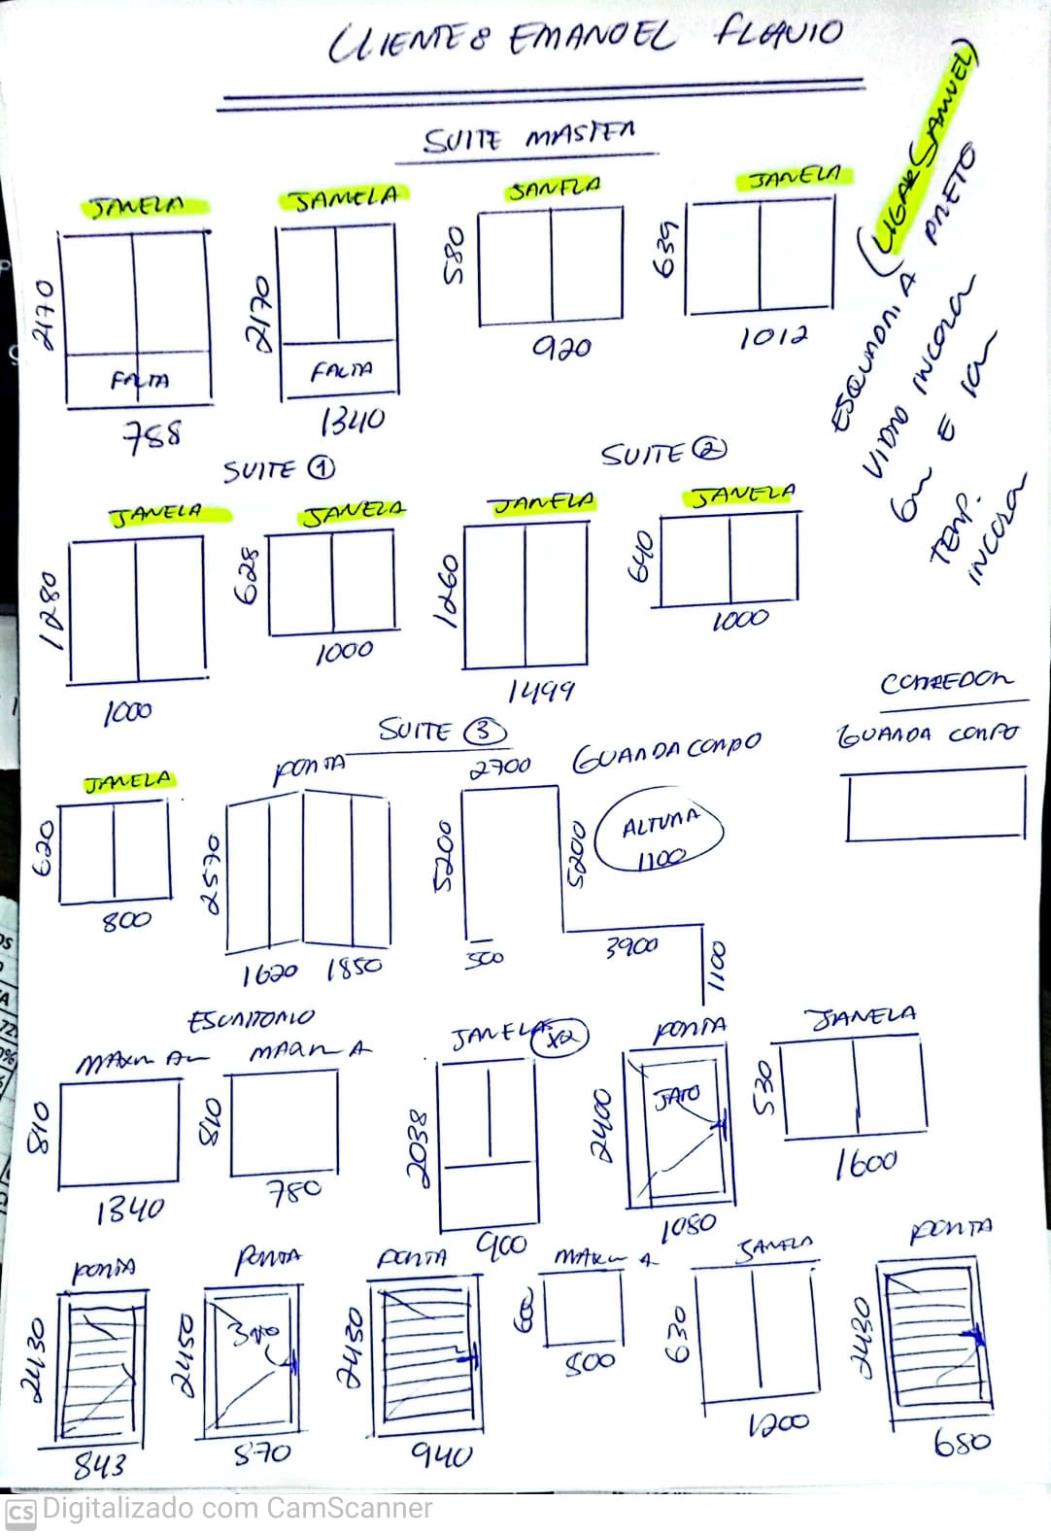 CLIENTE: EMANOEL FLAVIO
SUITE MASTER
(LIGAR SAMUEL)
ESQUADRIA PRETO
VIDRO INCOLOR
6m E 10m
TEMP.
INCOLOR
JANELA JANELA JANELA JANELA
2170 2170 580 639
FALTA FALTA 920 1012
788 1340
SUITE 1 SUITE 2
JANELA JANELA JANELA JANELA
1280 628 1260 640
1000 1000 1499 1000
CORREDOR
GUARDA CORPO
SUITE 3
JANELA PORTA 2700 GUARDA CORPO
620 2570 5200 5200 ALTURA
1100
800 1620 1850 500 3900 1100
ESCRITORIO
MAXIM AR MAXIM A JANELA X2 PORTA JANELA
810 810 2038 2400 JATO 530
1340 780 900 1080 1600
PORTA PORTA PORTA MAXIM A JANELA PORTA
2430 2450 2430 600 630 2430
843 870 940 800 1200 680
CS Digitalizado com CamScanner